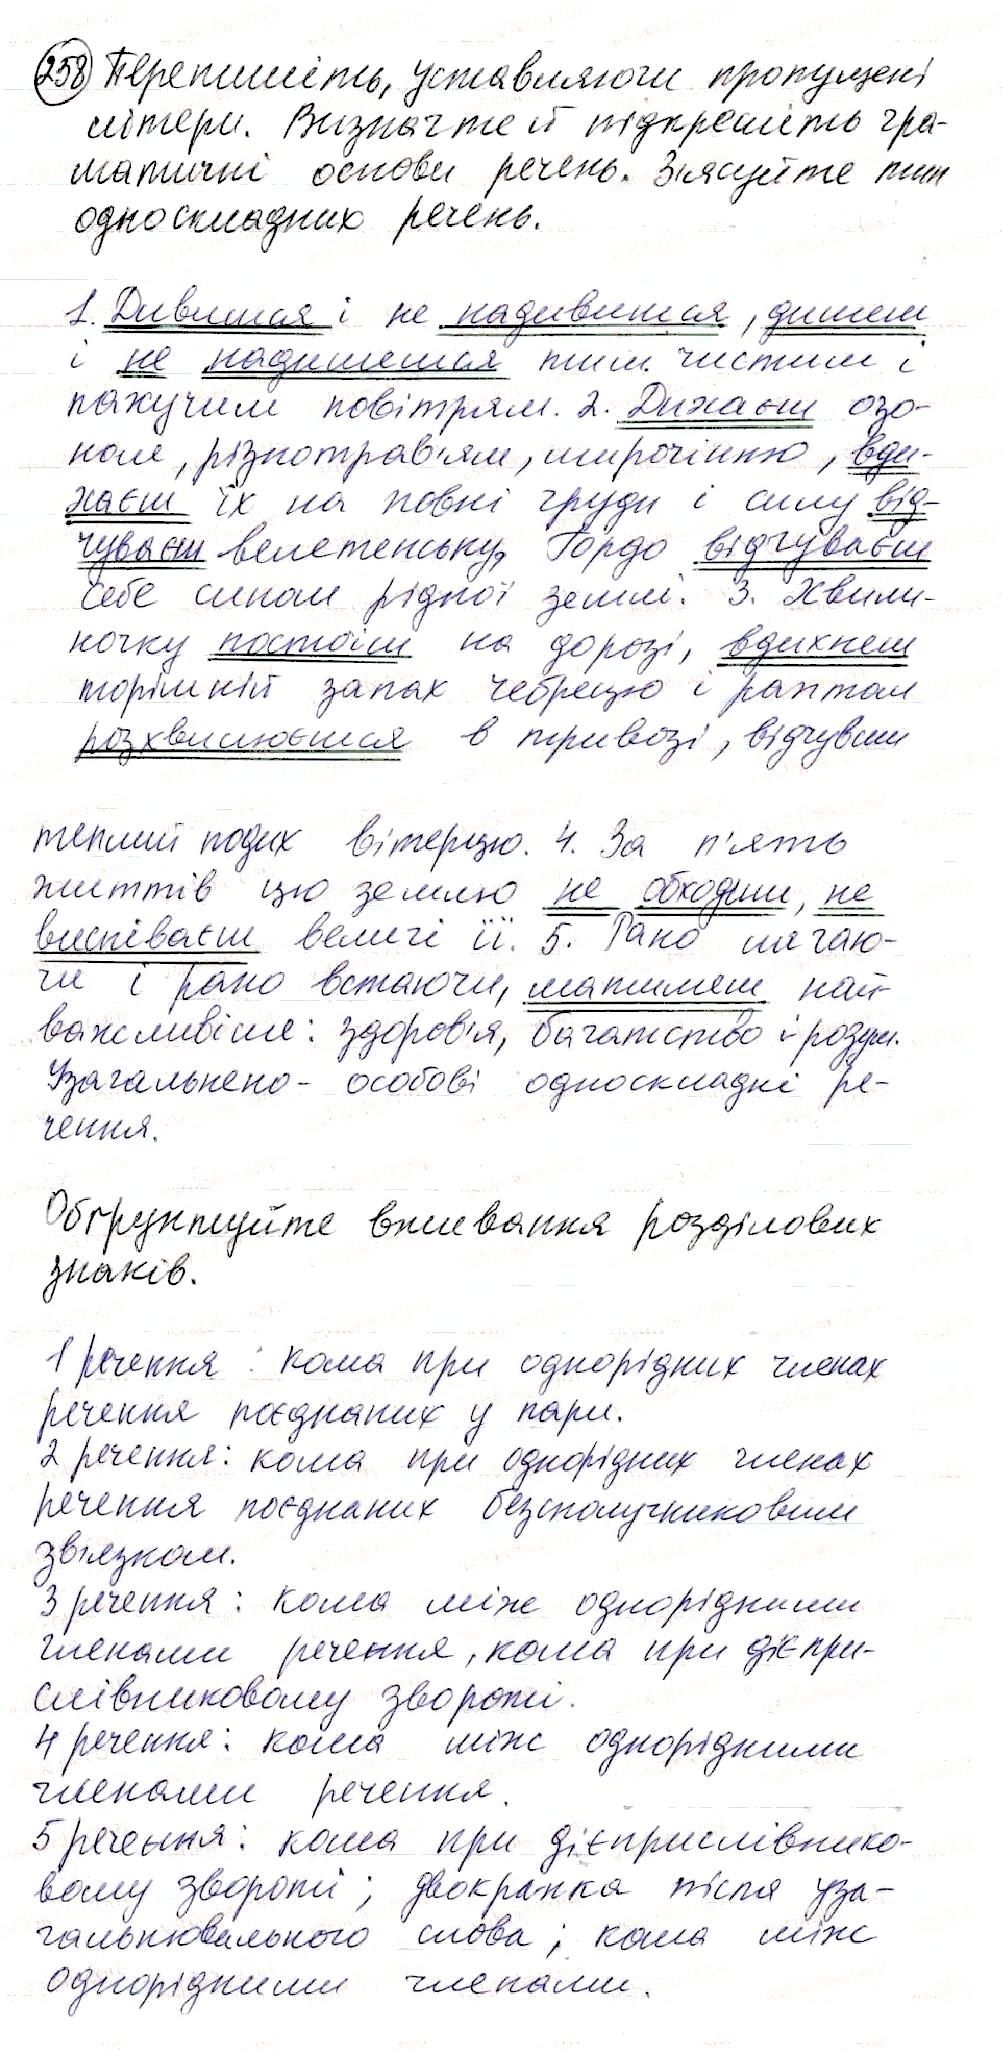 258 Перепишіть, уставляючи пропущені
літери. Визначте й підкресліть гра-
матичні основи речень. З'ясуйте тип
односкладних речень.
1. Дивишся і не надивишся, дишеш
і не надишешся тим чистим і
пахучим повітрям. 2. Дихаєш озо-
ном, різнотрав'ям, широчінню, вди-
хаєш їх на повні груди і силу від-
чуваєш велетенську, Гордо відчуваєш
себе сином рідної землі. 3. Хвили-
ночку постоїш на дорозі, вдихнеш
торішній запах чебрецю і раптом
розхвилюєшся в тривозі, відчувши
теплий подих вітерцю. 4. За п'ять
життів цю землю не обходиш, не
виспіваєш величі її. 5. Рано лягаю-
чи і рано встаючи, матимеш най-
важливіше: здоров'я, багатство і розум.
Узагальнено-особові односкладні ре-
чення.
Обґрунтуйте вживання розділових
знаків.
1 речення: кома при однорідних членах
речення поєднаних у пари.
2 речення: кома при однорідних членах
речення поєднаних безсполучниковим
зв'язком.
3 речення: кома між однорідними
членами речення, кома при дієпри-
слівниковому звороті.
4 речення: кома між однорідними
членами речення.
5 речення: кома при дієприслівнико-
вому звороті; двокрапка після уза-
гальнювального слова; кома між
однорідними членами.